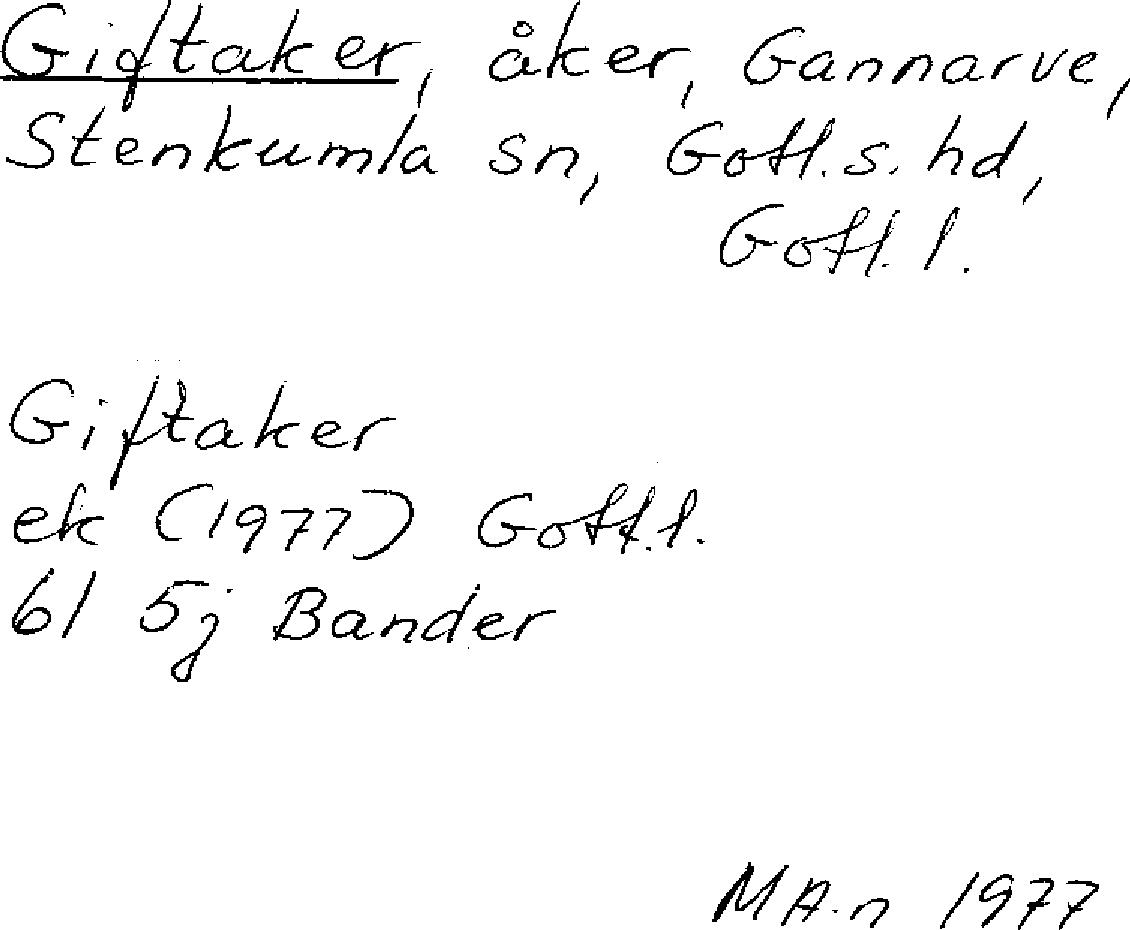 Giftaker, åker, Gannarve,
Stenkumla sn, Gotl. s. hd,
Gotl. l.
Giftaker
ek (1977) Gotl. l.
6I 5j Bander
MA-n 1977